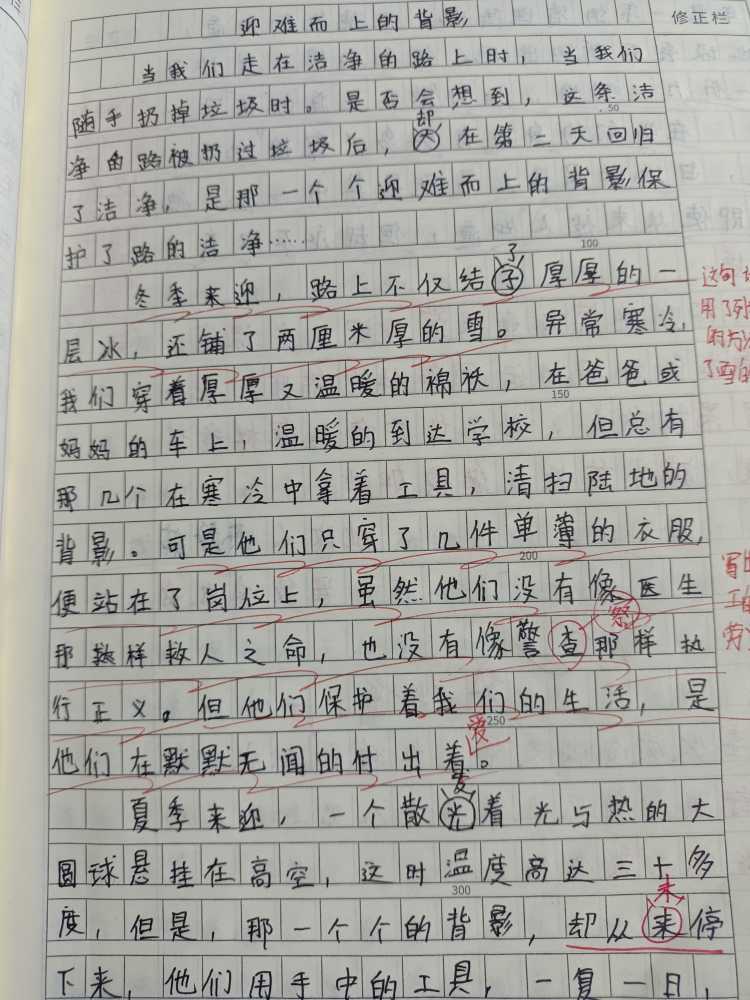 迎难而上的背影
修正栏
当我们走在洁净的路上时，当我们
随手扔掉垃圾时。是否会想到，这条洁
50
净的路被扔过垃圾后，却在第二天回归
了洁净，是那一个个迎难而上的背影保
护了路的洁净……
100
冬季来迎，路上不仅结了厚厚的一
层冰，还铺了两厘米厚的雪。异常寒冷，
我们穿着厚厚又温暖的棉袄，在爸爸或
150
妈妈的车上，温暖的到达学校，但总有
那几个在寒冷中拿着工具，清扫陆地的
背影。可是他们只穿了几件单薄的衣服，
200
便站在了岗位上，虽然他们没有像医生
那样救人之命，也没有像警查那样执
察
行正义。但他们保护着我们的生活，是
250
他们在默默无闻的付出着。
爱
夏季来迎，一个散着光与热的大
圆球悬挂在高空，这时温度高达三十多
300
度，但是，那一个个的背影，却从来停
未
下来，他们用手中的工具，一复一日，
这句
用了列
的方
了雪的
写出
工的
劳